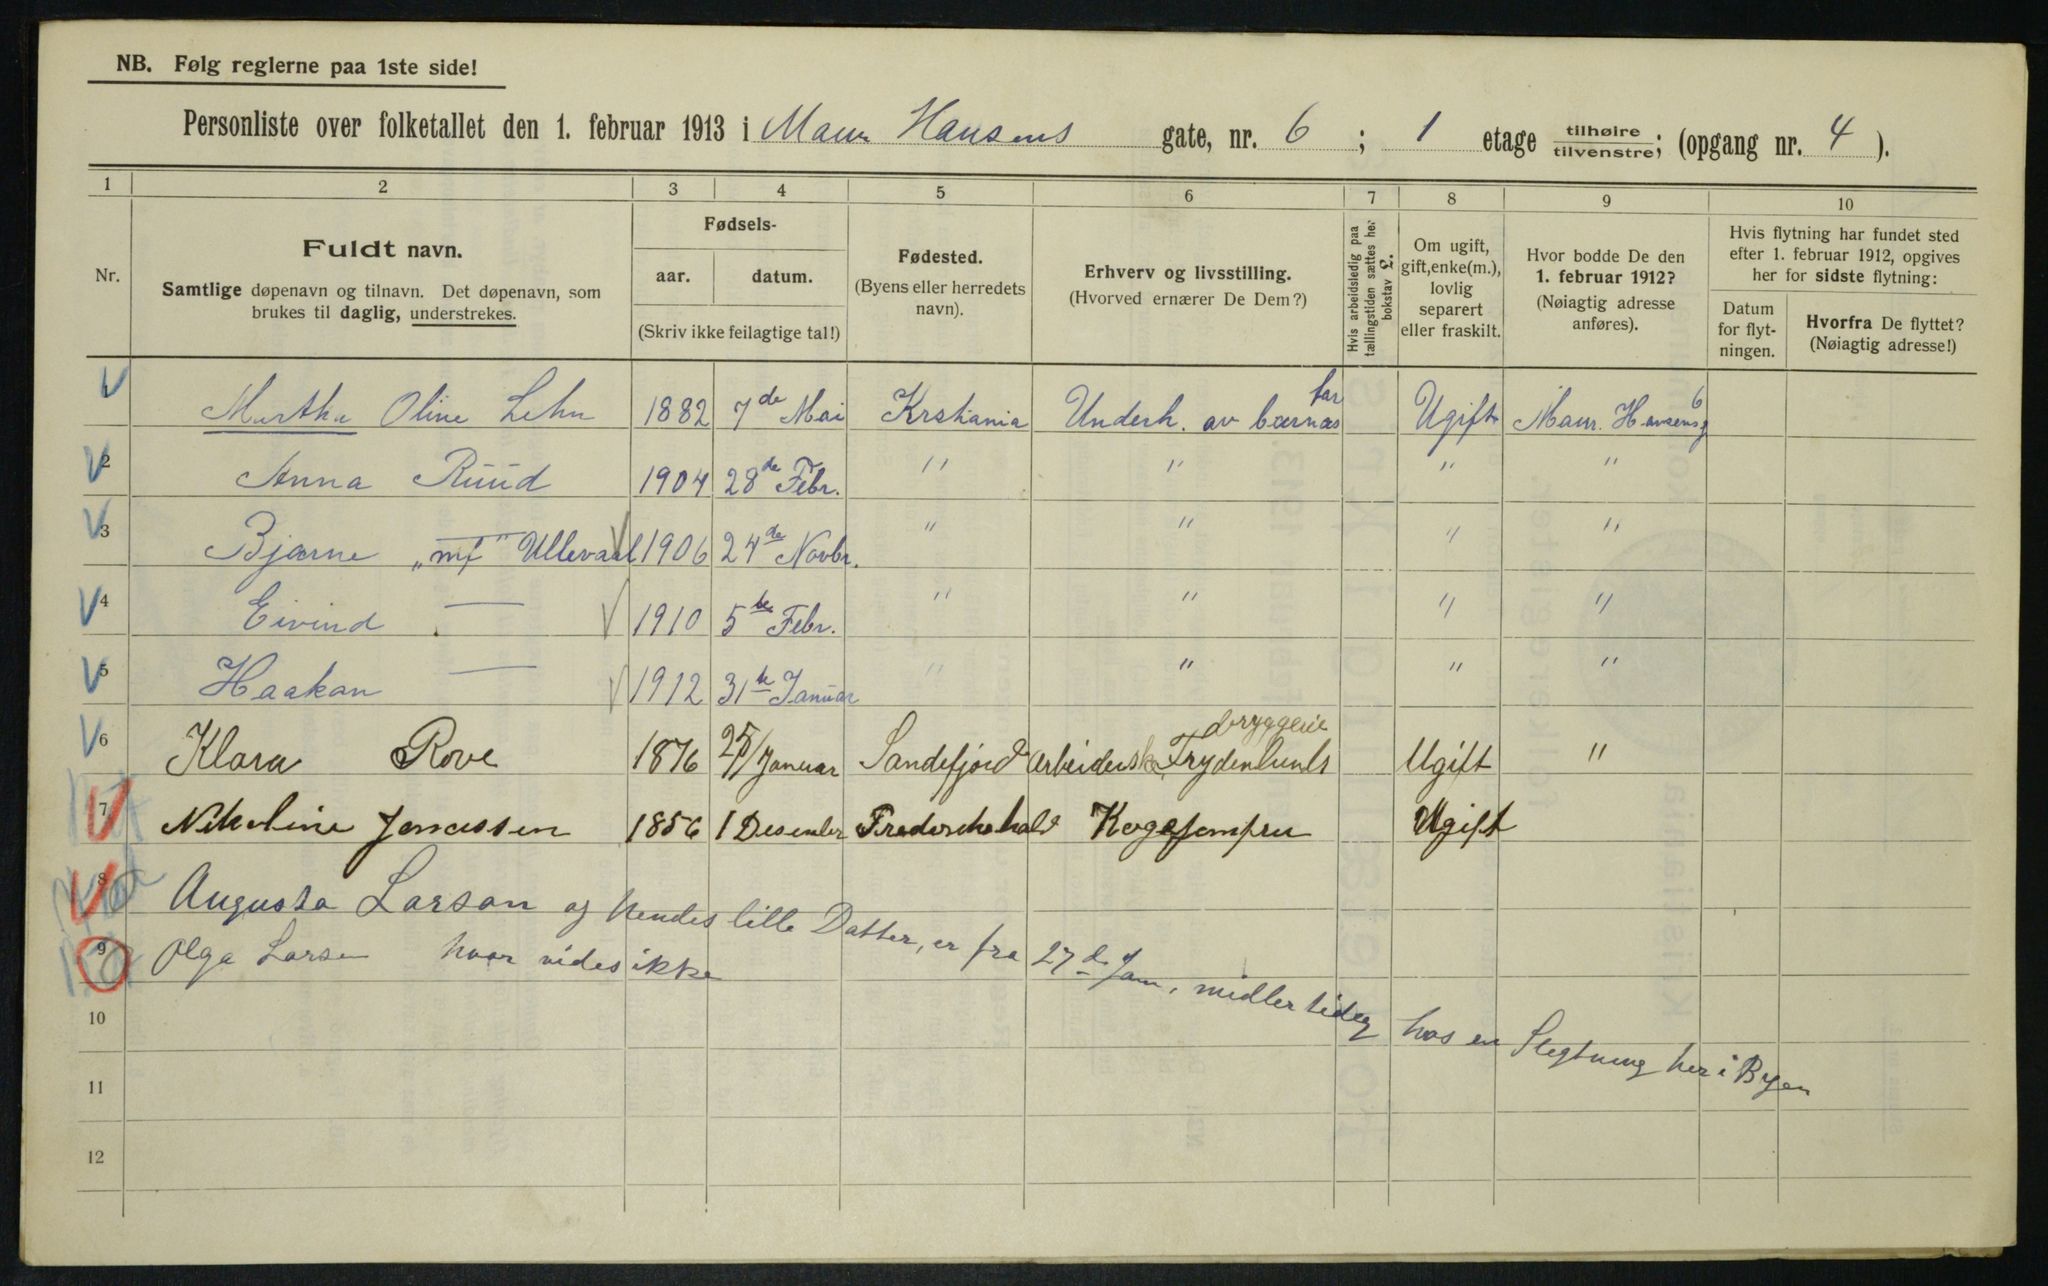 NB. Følg reglerne paa 1ste side!
Personliste over folketallet den 1. februar 1913 i Maur Hansens gate, nr. 6; 1 etage tilhøire/tilvenstre; (opgang nr. 4).
1 2 3 4 5 6 7 8 9 10
Nr.
Fuldt navn.
Samtlige døpenavn og tilnavn. Det døpenavn, som
brukes til daglig, understrekes.
Fødsels-
aar. datum.
(Skriv ikke feilagtige tal!)
Fødested.
(Byens eller herredets
navn).
Erhverv og livsstilling.
(Hvorved ernærer De Dem?)
Hvis arbeidsledig paa
tællingstiden sættes her
bokstav L.
Om ugift,
gift, enke(m.),
lovlig
separert
eller fraskilt.
Hvor bodde De den
1. februar 1912?
(Nøiagtig adresse
anføres).
Hvis flytning har fundet sted
efter 1. februar 1912, opgives
her for sidste flytning:
Datum
for flyt-
ningen.
Hvorfra De flyttet?
(Nøiagtig adresse!)
1 Martha Oline Lehn 1882 7de Mai Krstiania Underh. av barnas far Ugift Maur. Hansensg 6
2 Anna Ruud 1904 28de Febr. " " " "
3 Bjarne " Ullevaal 1906 24de Novbr. " " " "
4 Eivind — 1910 5te Febr. " " " "
5 Haakan — 1912 31te Januar " " " "
6 Klara Rove 1876 25/1 Januar Sandefjord Arbeiderske Frydenlunds bryggerie Ugift "
7 Nikoline Jonassen 1856 1 Desember Frederikshald Kogejomfru Ugift
8 Augusta Larson og hendes lille Datter, er fra 27d Jan, midlertidig hos en Slegtning her i Byen
9 Olga Larsen hvor vides ikke
10
11
12